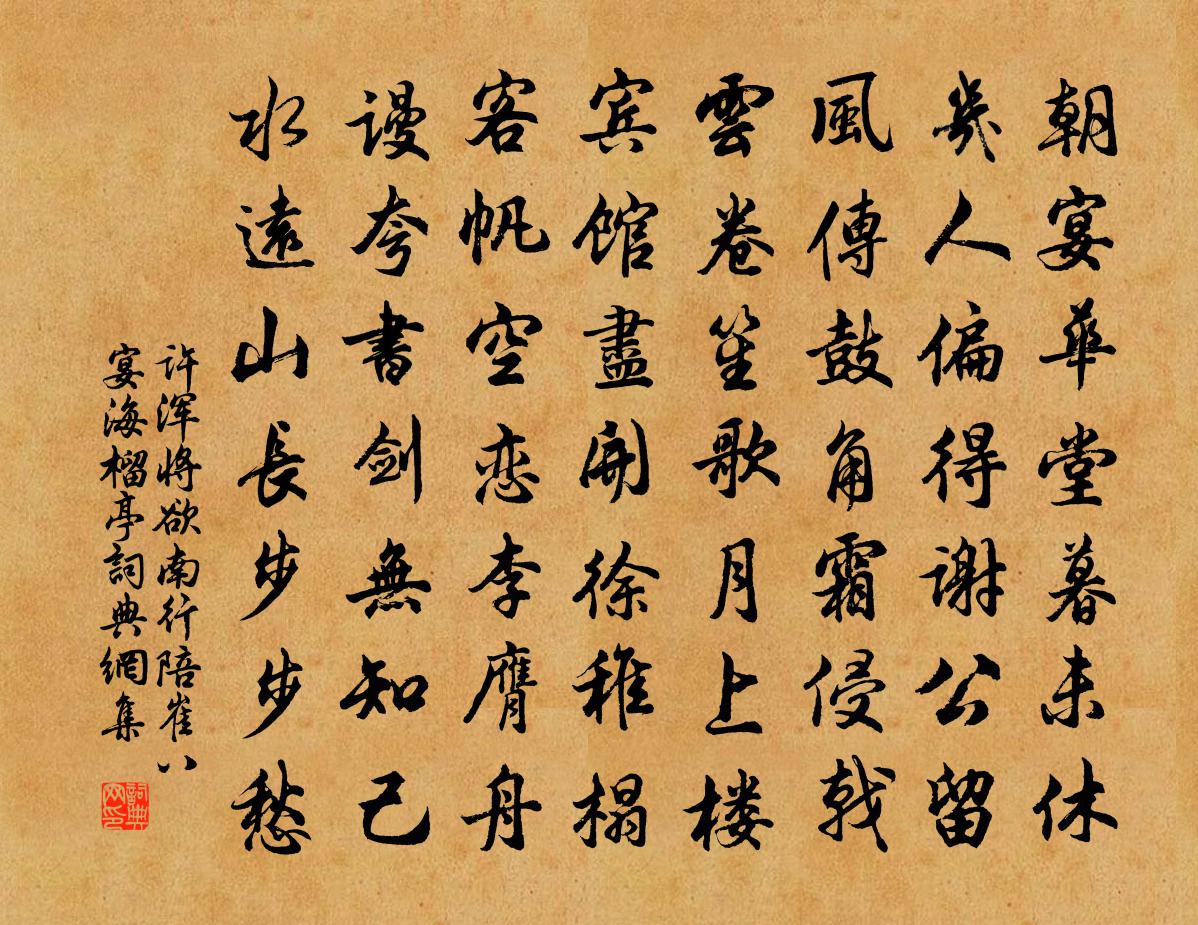 朝宴華堂暮未休
幾人偏得謝公留
風傳鼓角霜侵戟
雲卷笙歌月上楼
宾館盡開徐稚榻
客帆空恋李膺舟
謾夸書剑無知己
水遠山長步步愁
许浑将欲南行陪崔八
宴海榴亭詞典網集
詞典
网印